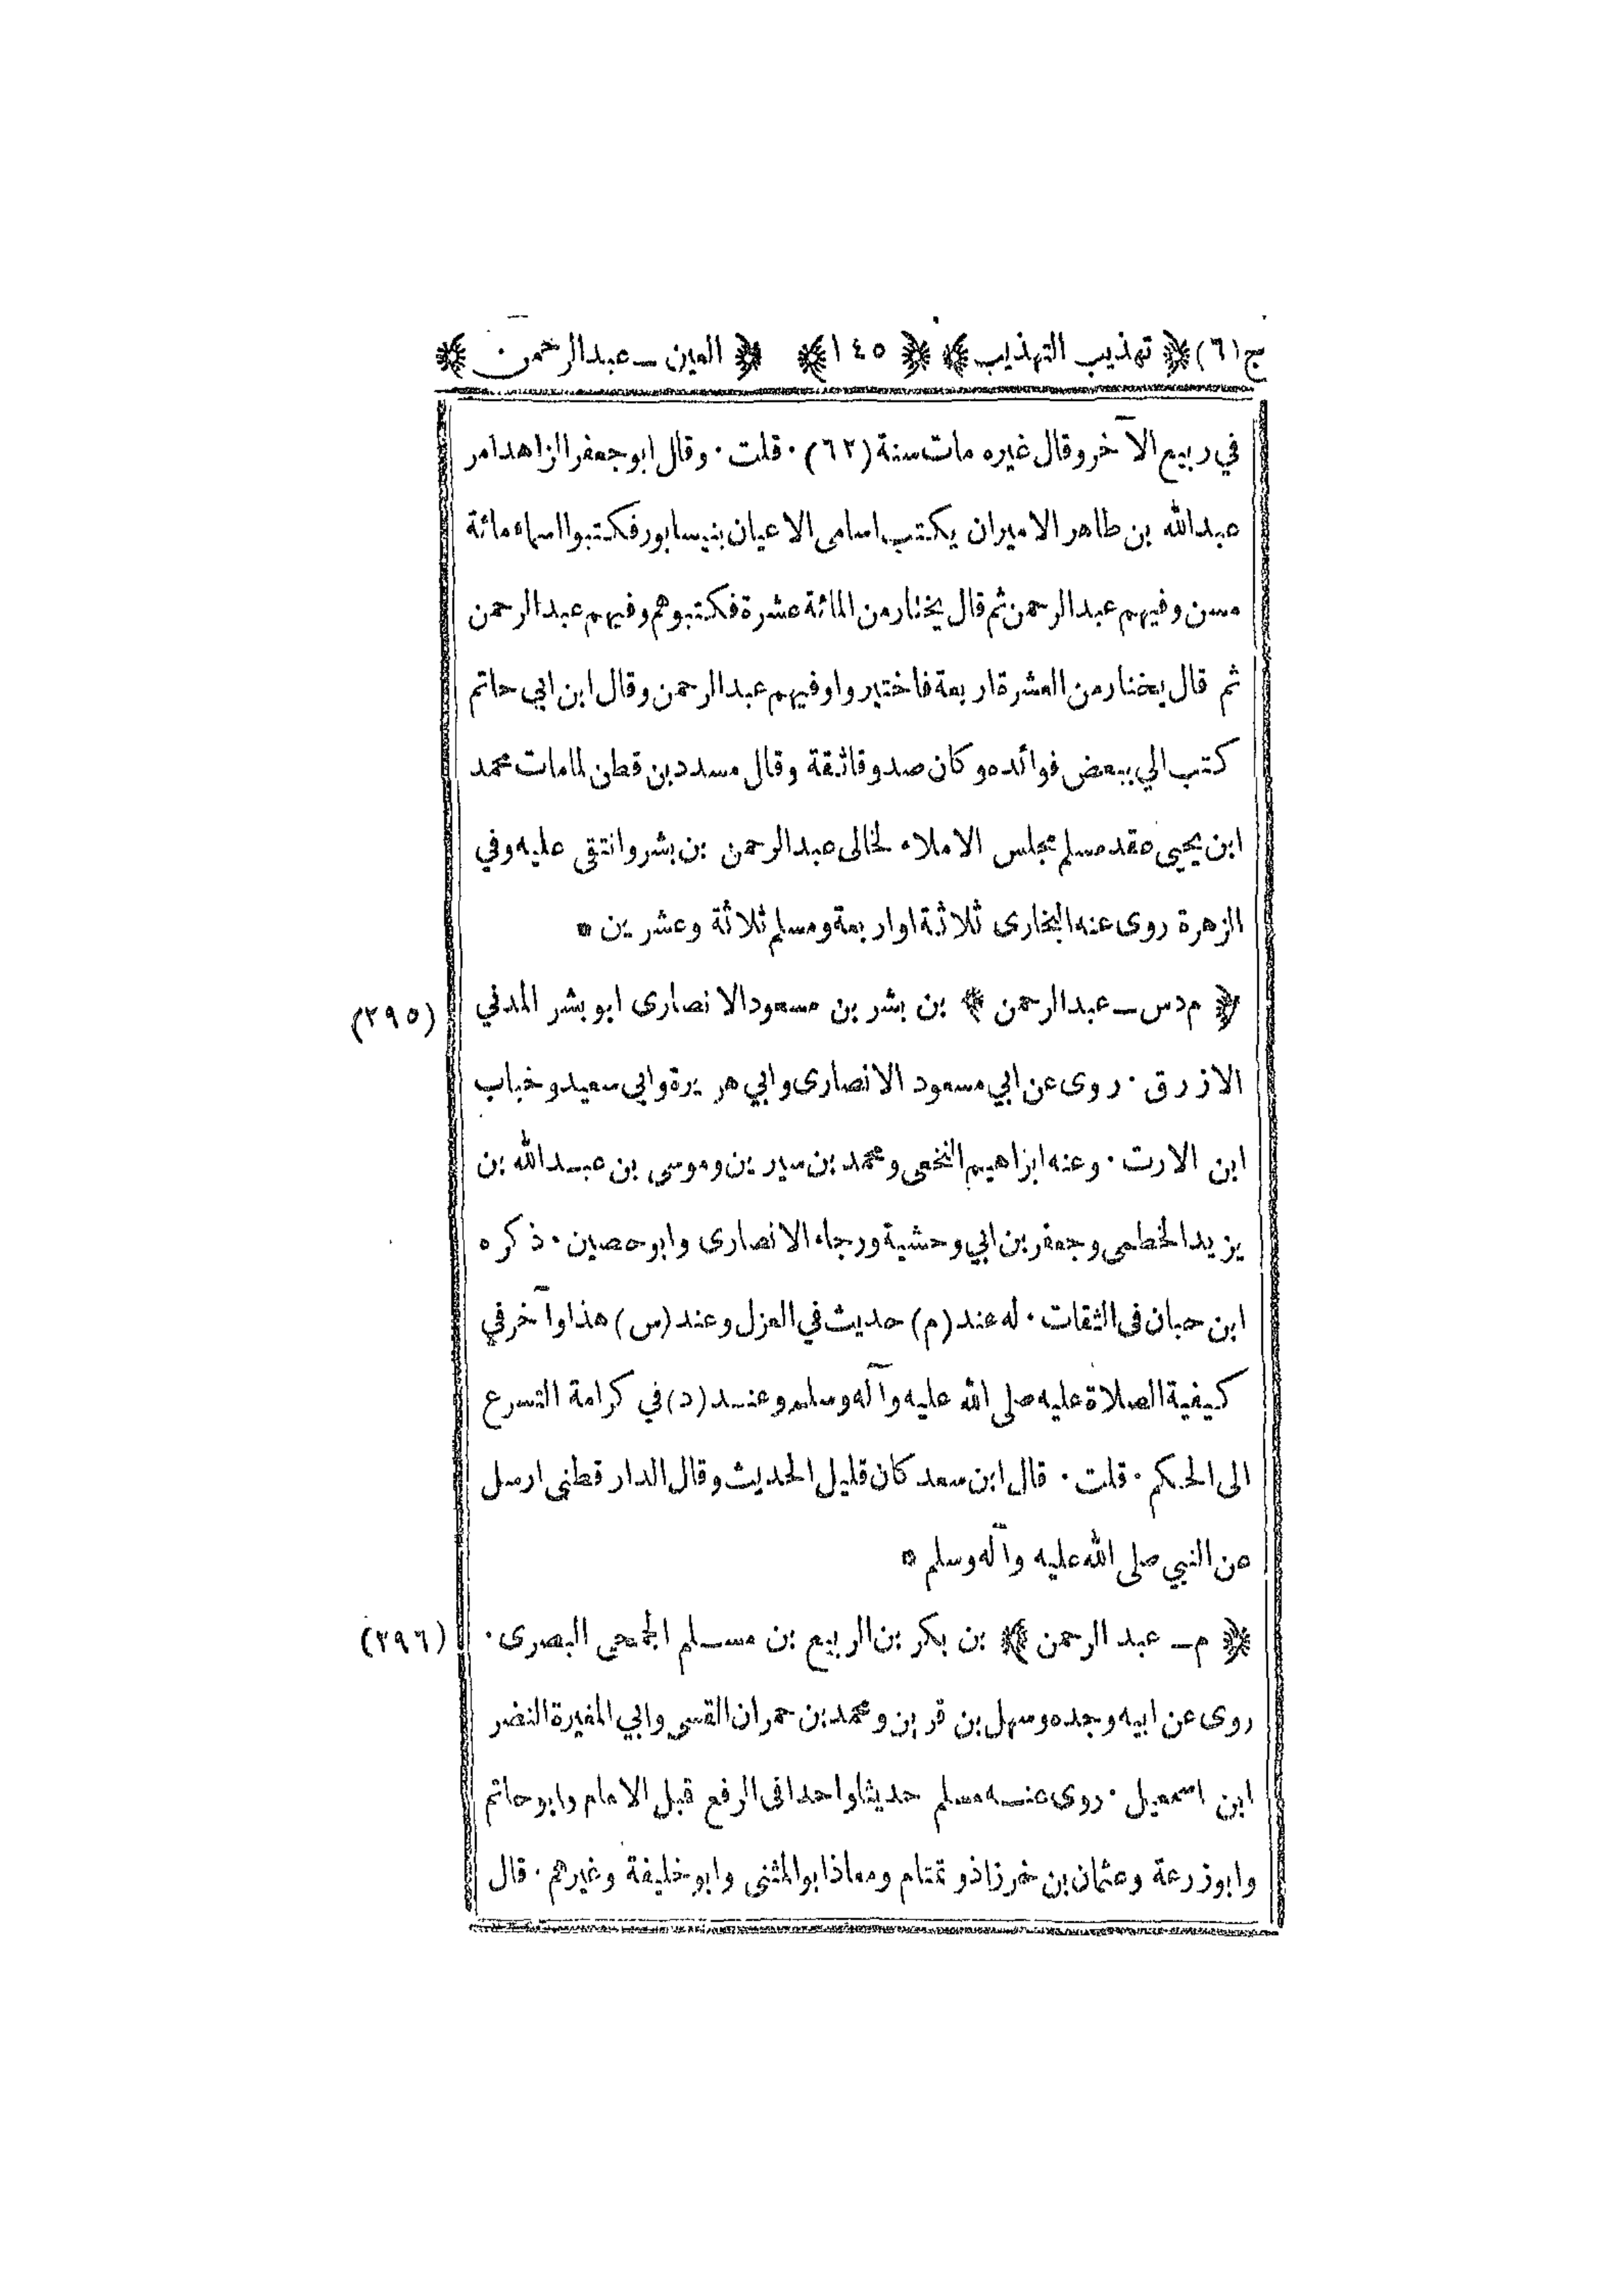 ج (٦) ﴿ تهذيب التهذيب ﴾ ﴿ ١٤٥ ﴾ ﴿ العين ــ عبدالرحمن ﴾
في ربيع الآخر وقال غيره مات سنة (٦٢) . قلت . وقال ابو جعفر الزاهد امر
عبدالله بن طاهر الامير ان يكتب اسامى الاعيان بنيسابور فكتبوا اسماء مائة
مسن وفيهم عبدالرحمن ثم قال يختار من المائة عشرة فكتبوهم وفيهم عبدالرحمن
ثم قال يختار من العشرة اربعة فاختيروا وفيهم عبدالرحمن وقال ابن ابي حاتم
كتب الي ببعض فوائده وكان صدوقا ثقة وقال مسدد بن قطن لما مات محمد
ابن يحيى عقد مسلم مجلس الاملاء لخالى عبدالرحمن بن بشر وانتقى عليه وفي
الزهرة روى عنه البخارى ثلاثة او اربعة ومسلم ثلاثة وعشرين ۞
﴿ م د س ــ عبدالرحمن ﴾ بن بشر بن مسعود الانصارى ابو بشر المدني (٢٩٥)
الازرق . روى عن ابي مسعود الانصارى وابي هريرة وابي سعيد وخباب
ابن الارت . وعنه ابراهيم النخعى ومحمد بن سيرين وموسى بن عبدالله بن
يزيد الخطمى وجعفر بن ابي وحشية ورجاء الانصارى وابو حصين . ذكره
ابن حبان فى الثقات . له عند (م) حديث في العزل وعند (س) هذا وآخر في
كيفية الصلاة عليه صلى الله عليه وآله وسلم وعنــد (د) في كرامة التسرع
الى الحكم . قلت . قال ابن سعد كان قليل الحديث وقال الدار قطنى ارسل
عن النبي صلى الله عليه وآله وسلم ۞
﴿ م ــ عبد الرحمن ﴾ بن بكر بن الربيع بن مســلم الجمحى البصرى . (٢٩٦)
روى عن ابيه وجده وسهل بن قرين ومحمد بن حمران القسى وابي المغيرة النضر
ابن اسمعيل . روى عنــه مسلم حديثا واحدا فى الرفع قبل الامام وابو حاتم
وابو زرعة وعثمان بن خرزاذ وتمتام ومعاذ ابو المثنى وابو خليفة وغيرهم . قال